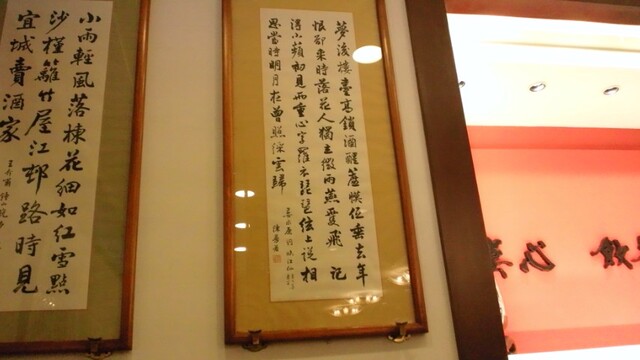 夢後樓臺高鎖酒醒簾幙低垂去年
恨卻來時落花人獨立微雨燕雙飛 記
得小蘋初見兩重心字羅衣琵琶絃上說相
思當時明月在曾照綵雲歸
小雨輕風落楝花細如紅雪點
沙槿籬竹屋江邨路時見
宜城賣酒家
心